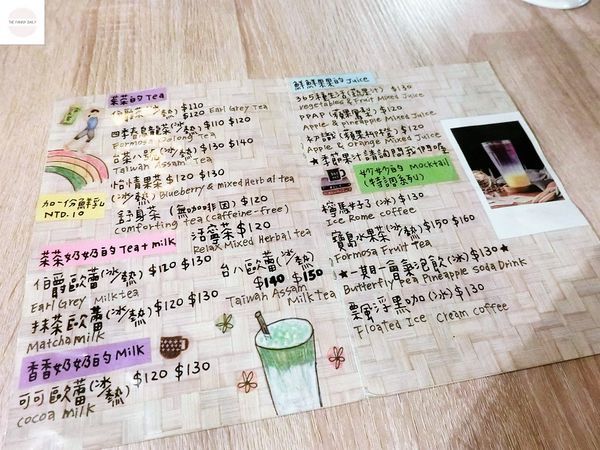 THE FUNNY DAILY
茶茶的Tea
伯爵茶(冰/熱) $120 $120 Earl Grey Tea
四季春烏龍茶(冰/熱) $110 $120
Formosa Oolong Tea
台茶八號(冰/熱) $130 $140
Taiwan Assam Tea
怡情果茶 $120 $130
(冰/熱) Blueberry & mixed Herbal tea
舒身茶(無咖啡因) $120
comforting tea (caffeine-free)
活寧茶 $120
Relax Mixed Herbal tea
加一份鮮乳
NTD.10
茶茶奶奶的Tea+milk
伯爵歐蕾(冰/熱) $120 $130
Earl Grey Milktea
台八歐蕾(冰/熱)
$140 $150
Taiwan Assam
Milktea
抹茶歐蕾(冰/熱) $120 $130
Matcha milk
香香奶奶的Milk
可可歐蕾(冰/熱) $120 $130
cocoa milk
鮮鮮果果的Juice
365種生活(蔬果汁) $130
vegetables & Fruit Mixed Juice
PPAP $120
Apple & pineapple Mixed Juice
$120
Apple & Orange Mixed Juice
★季節果汁請詢問我們的店
妙妙的Mocktail
(特調系列)
(冰) $130
Ice Rome coffee
寶島水果茶(冰/熱) $150 $160
Formosa Fruit Tea
★一期一會氣泡飲(冰) $130★
Butterfly Pea Pineapple Soda Drink
飄浮黑咖(冰) $130
Floated Ice Cream coffee